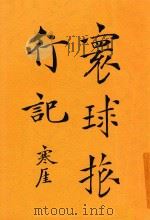 寰球旅
行記
寒厓